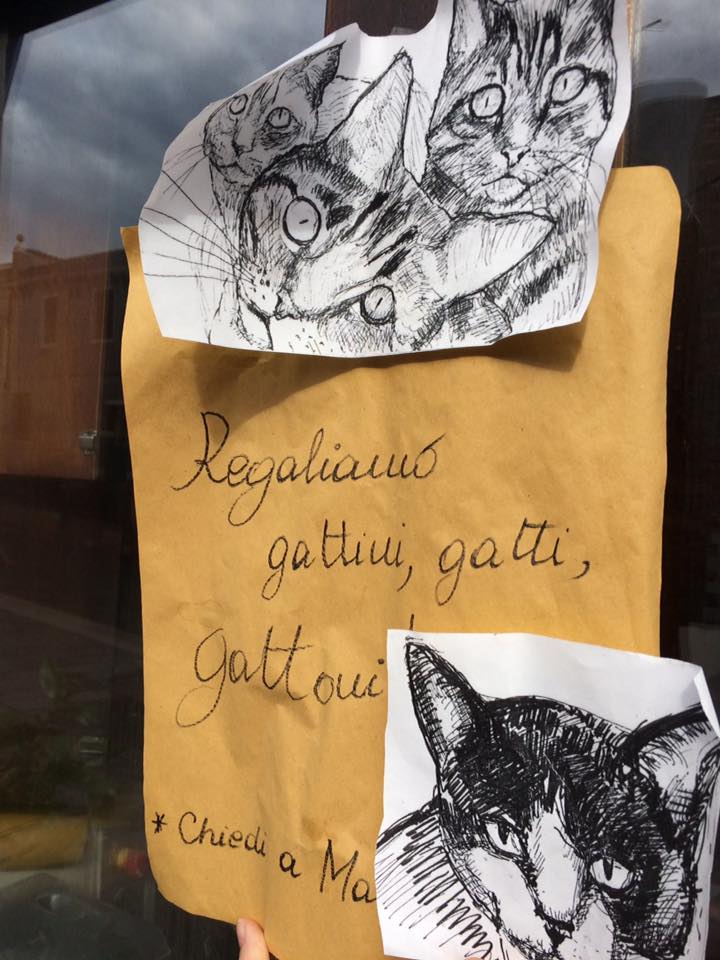 Regaliamo
gattini, gatti,
gattoni
* Chiedi a Ma